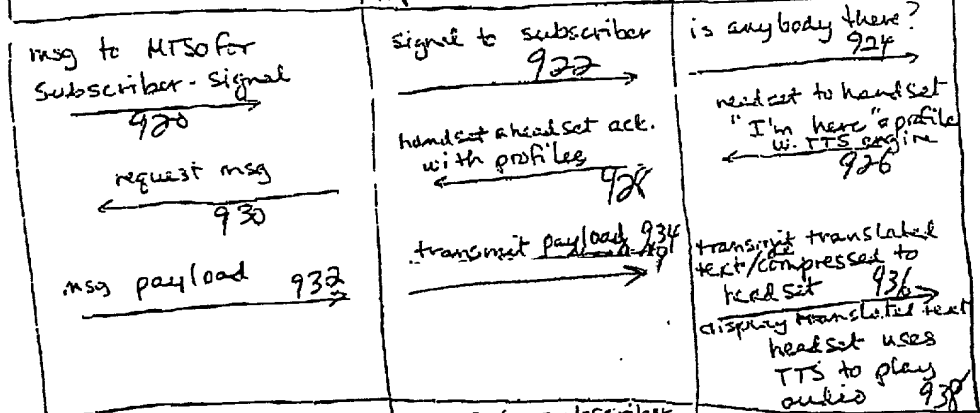 msg to MTSO for
subscriber - signal
920
request msg
930
msg payload 932
signal to subscriber
922
handset & headset ack.
with profiles
928
transmit payload 934
is anybody there?
924
headset to handset
"I'm here" & profile
w. TTS engine
926
transmit translated
text/compressed to
headset 936
display translated text
headset uses
TTS to play
audio 938
subscriber